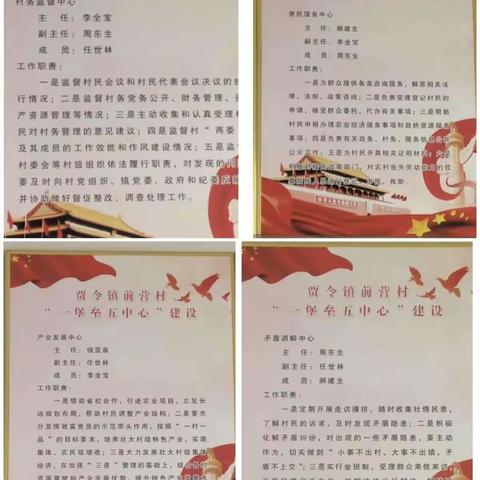 村务监督中心
主 任：李全宝
副主任：周东生
成 员：任世林
工作职责：
一是监督村民会议和村民代表会议决议的执
行情况；二是监督村务党务公开、财务管理、资
产资源管理等情况；三是主动收集和认真受理村
民对村务管理的意见建议；四是监督村“两委
及其成员的工作效能和作风建设情况；五是监
村委会等村级组织依法履行职责，对发现的问
要及时向村党组织、镇党委、政府和纪委反映
并协助做好督促整改、调查处理工作。
便民服务中心
主 任：郝建生
副主任：李全宝
成 员：周东生
工作职责：
一是为群众提供各类咨询服务，解答相关法
律、法规、政策咨询；二是负责受理登记村民的
申请，接受群众委托，代办有关事项；三是帮助
村民申报办理农业经济服务事项和自然资源服务
事项；四是负责有关政务、村务、服务信息公开
公示工作；五是为村民开具相关证明材料；
贾令镇前营村
“一堡垒五中心”建设
产业发展中心
主 任：钱亚泉
副主任：任世林
成 员：李全宝
工作职责：
一是借助省校合作，引进农业项目，立足长
远规划布局，帮助村民调整产业结构；二是要充
分发挥致富党员的示范带头作用，按照“一村一
品”的目标要求，培养壮大村级特色产业，实现
集体、农民双增收；三是大力发展壮大村级集体
经济，在加强“三资”管理的基础上，
贾令镇前营村
“一堡垒五中心”建设
矛盾调解中心
主 任：周东生
副主任：任世林
成 员：郝建生
工作职责：
一是定期开展走访摸排，随时收集社情民意，
了解村民的诉求，及时发现矛盾隐患；二是积极
化解矛盾纠纷，对出现的一些矛盾隐患，要主动
作为，切实做到“小事不出村、大事不出镇、矛
盾不上交”；三是实行坐班制，受理群众来信来访